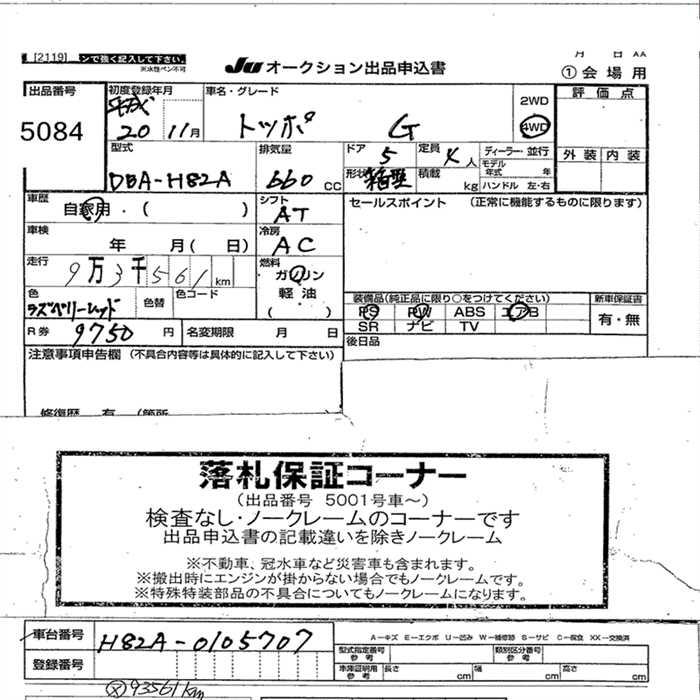 [2119] ンで強く記入して下さい。
※水性ペン不可
JU オークション出品申込書
月 日 AA
① 会場用
出品番号
5084
初度登録年月
20 11月
車名・グレード
トッポ G
2WD
4WD
評価点
外装 内装
型式
DBA-H82A
排気量
660 cc
ドア
5
定員
4 人
形状
箱型
積載
kg
ディーラー・並行
モデル年式 年
ハンドル 左・右
車歴
自家用・( )
シフト
AT
セールスポイント (正常に機能するものに限ります)
車検
年 月( 日)
冷房
AC
走行
9万3千561km
燃料
ガソリン
軽油
( )
色
ラズベリーレッド
色替
色コード
装備品(純正品に限り○をつけてください)
PS PW ABS エアB
SR ナビ TV
新車保証書
有・無
R券
9750 円
名変期限 月 日
後日品
注意事項申告欄 (不具合内容等は具体的に記入して下さい)
修復歴 有 (箇所
落札保証コーナー
(出品番号 5001号車～)
検査なし・ノークレームのコーナーです
出品申込書の記載違いを除きノークレーム
※不動車、冠水車など災害車も含まれます。
※搬出時にエンジンが掛からない場合でもノークレームです。
※特殊特装部品の不具合についてもノークレームになります。
車台番号
H82A-0105707
A-キズ E-エクボ U-凹み W-補修跡 S-サビ C-腐食 XX-交換済
型式指定番号
参考
類別区分番号
参考
登録番号
車庫証明用
参考
長さ cm 幅 cm 高さ cm
93561km